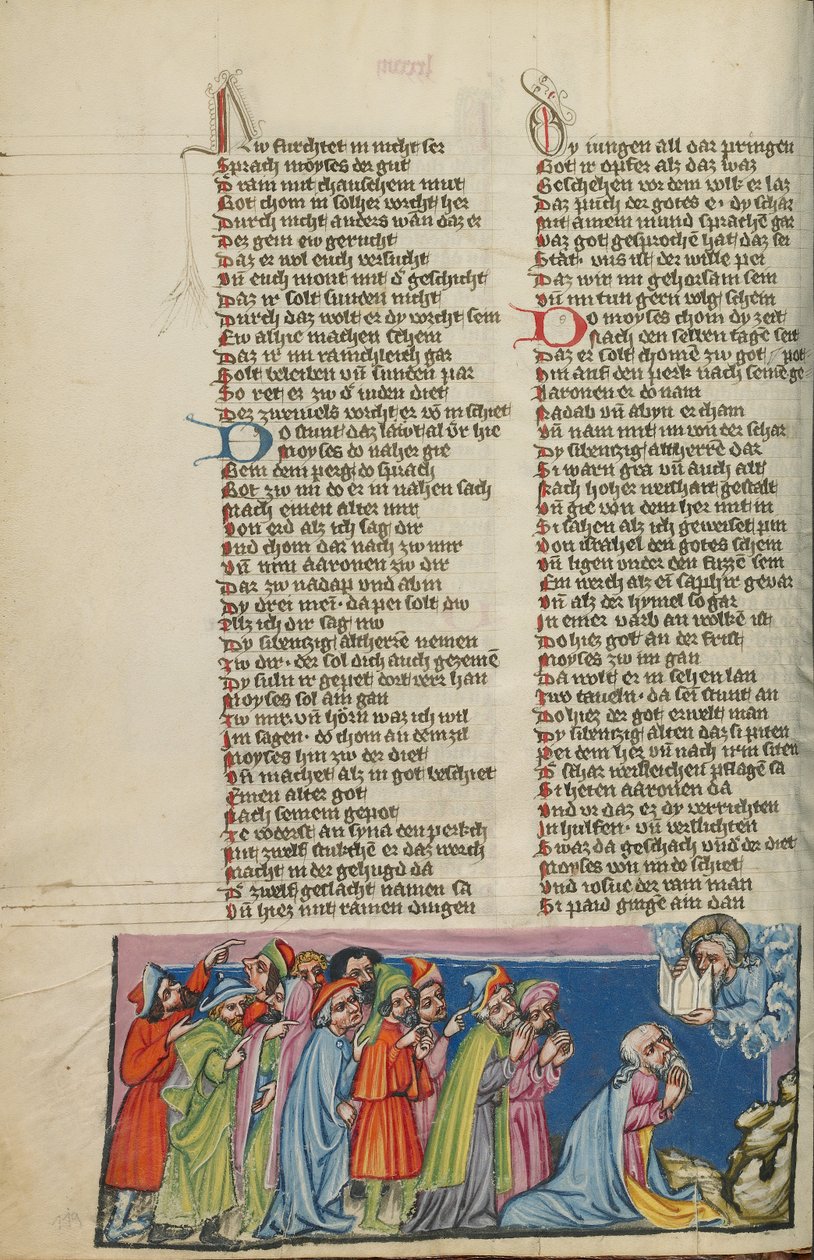 lxxxvij
Nw furchtet in nicht ser
Sprach moyses der gut
D ram mit chauschem mut
Got chom in solher vorcht her
Durch nicht anders wan daz er
Der gern ew gerucht
Daz er wol euch versucht
Vñ euch mont mit d' geschicht
Daz ir solt sunden nicht
Durch daz wolt er dy vorcht sein
Ew alhie machen schein
Daz ir im rainchleich gar
Solt beleiben vñ sunden par
So ret er zw d' iuden diet
Der zweiuels vorcht er vō in schiet
Do stunt daz lawt al vͤr hie
Moyses do naher gie
Gein dem perg do sprach
Got zw im do er in nahen sach
Mach einen alter mir
Von erd alz ich sag dir
Vnd chom dar nach zw mir
Vñ nim aaronen zw dir
Dar zw nadap vnd abiu
Dy drei men· da pei solt dw
Allz ich dir sag nw
Dy sibenczig altherrē nemen
Zw dir· der sol dich auch gezemē
Dy suln ir gepet dort verr han
Moyses sol ain gan
Zw mir· vñ hörn waz ich wil
Im sagen· do chom an dem zil
Moyses hin zw der diet
Vñ machet alz in got beschiet
Einen alter got
Nach seinem gepot
Ze vöderst an syna den perkch
Mit zwelf stukchē er daz werch
Macht in der gehugd da
D' zwelf geslächt namen sa
Vñ hiez mit ramen dingen
Dy iungen all dar pringen
Got ir opfer alz daz waz
Geschehen vor dem volk er laz
Daz pu̇ch der gotes e· dy schar
Mit ainem mund sprachē gar
Waz got gesprochē hat daz sei
Stät· vns ist der wille pei
Daz wir im gehorsam sein
Vñ im tun gern volg schein
Do moyses chom dy zeit
Nach den selben tagē seit
Daz er solt chomē zw got pot
Im auf den perk nach seinē ge-
Aaronen er do nam
Nadab vñ abyu er cham
Vñ nam mit im von der schar
Dy sibenczig altherrē dar
Si warn gra vñ auch alt
Nach hoher weishait gestalt
Vñ gie von dem her mit in
Si sahen alz ich geweiset pin
Von israhel den gotes schein
Vñ ligen vnder den fuzzē sein
Ein werch alz eī saphir gevar
Vñ alz der hymel so gar
In einer varb an wolkē ist
Do hiez got an der frist
Moyses zw im gan
Da wolt er in sehen lan
Zwo taueln· da seī stunt an
Do hiez der got erwelt man
Dy sibenczig alten daz si piten
Pei dem her vñ nach irm siten
D' schar weisleichen pflagē sa
Si heten aaronen da
Vnd vr daz ez dy verrichten
In hulfen· vñ verslichten
Swaz da geschach vnd' der diet
Moyses von im do schiet
Vnd iosue der rain man
Si paid gingē ain dan
119